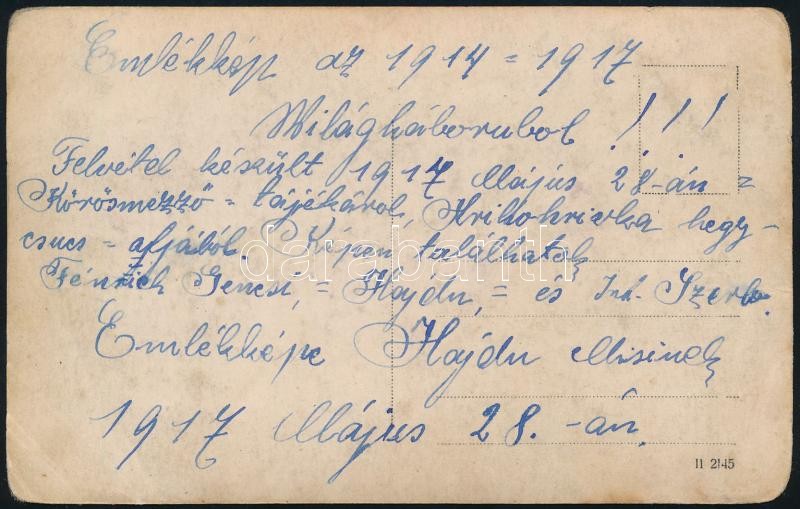 Emlékkép az 1914 = 1917
Világháborubol !!!
Felvétel készült 1917 Május 28-án =
Körösmező = tájékárol, Hrihohrivka hegy-
csucs = aljából. Képen találhatok
Fénrich Gencsi, = Hajdu, = és Inf. Szerb.
Emlékképe Hajdu Misinek
1917 Május 28.-án.
II 2145
darabanth